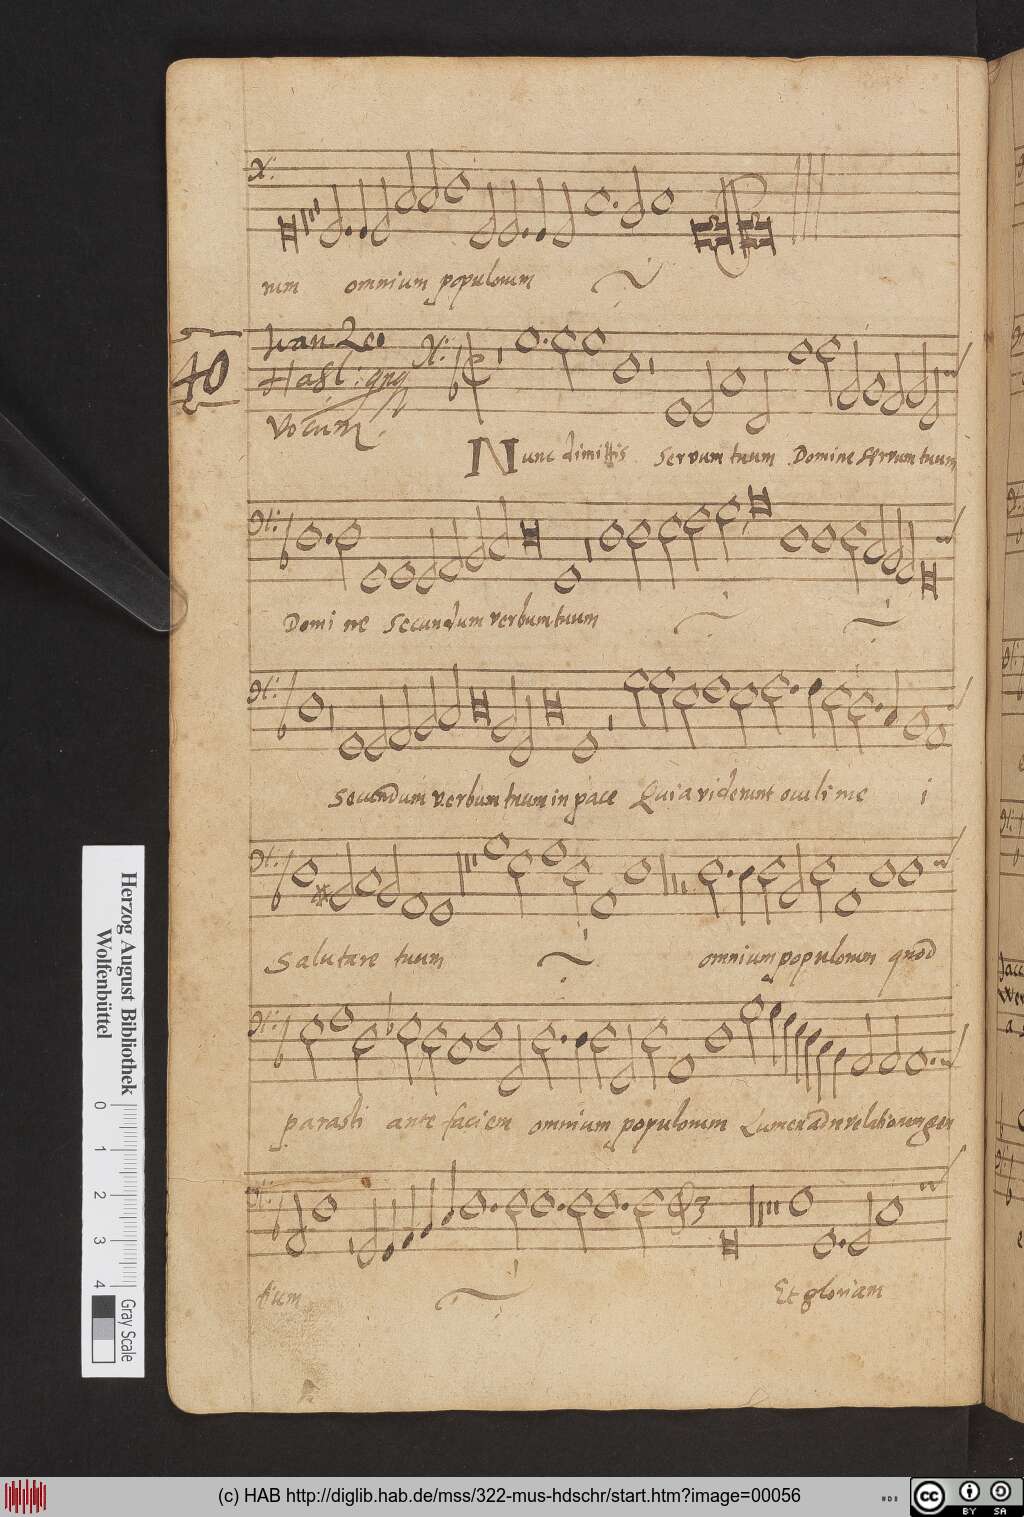 rum omnium populorum
40
Han Leo
Hasl:
Votum
Nunc dimittis servum tuum Domine servum tuum
Domine secundum verbum tuum
Secundum verbum tuum in pace Quia viderunt oculi me i
Salutare tuum omnium populorum quod
parasti ante faciem omnium populorum Lumen ad revelationem gen
tium Et gloriam
Herzog August Bibliothek
Wolfenbüttel
0 1 2 3 4
Gray Scale
(c) HAB http://diglib.hab.de/mss/322-mus-hdschr/start.htm?image=00056
cc BY SA